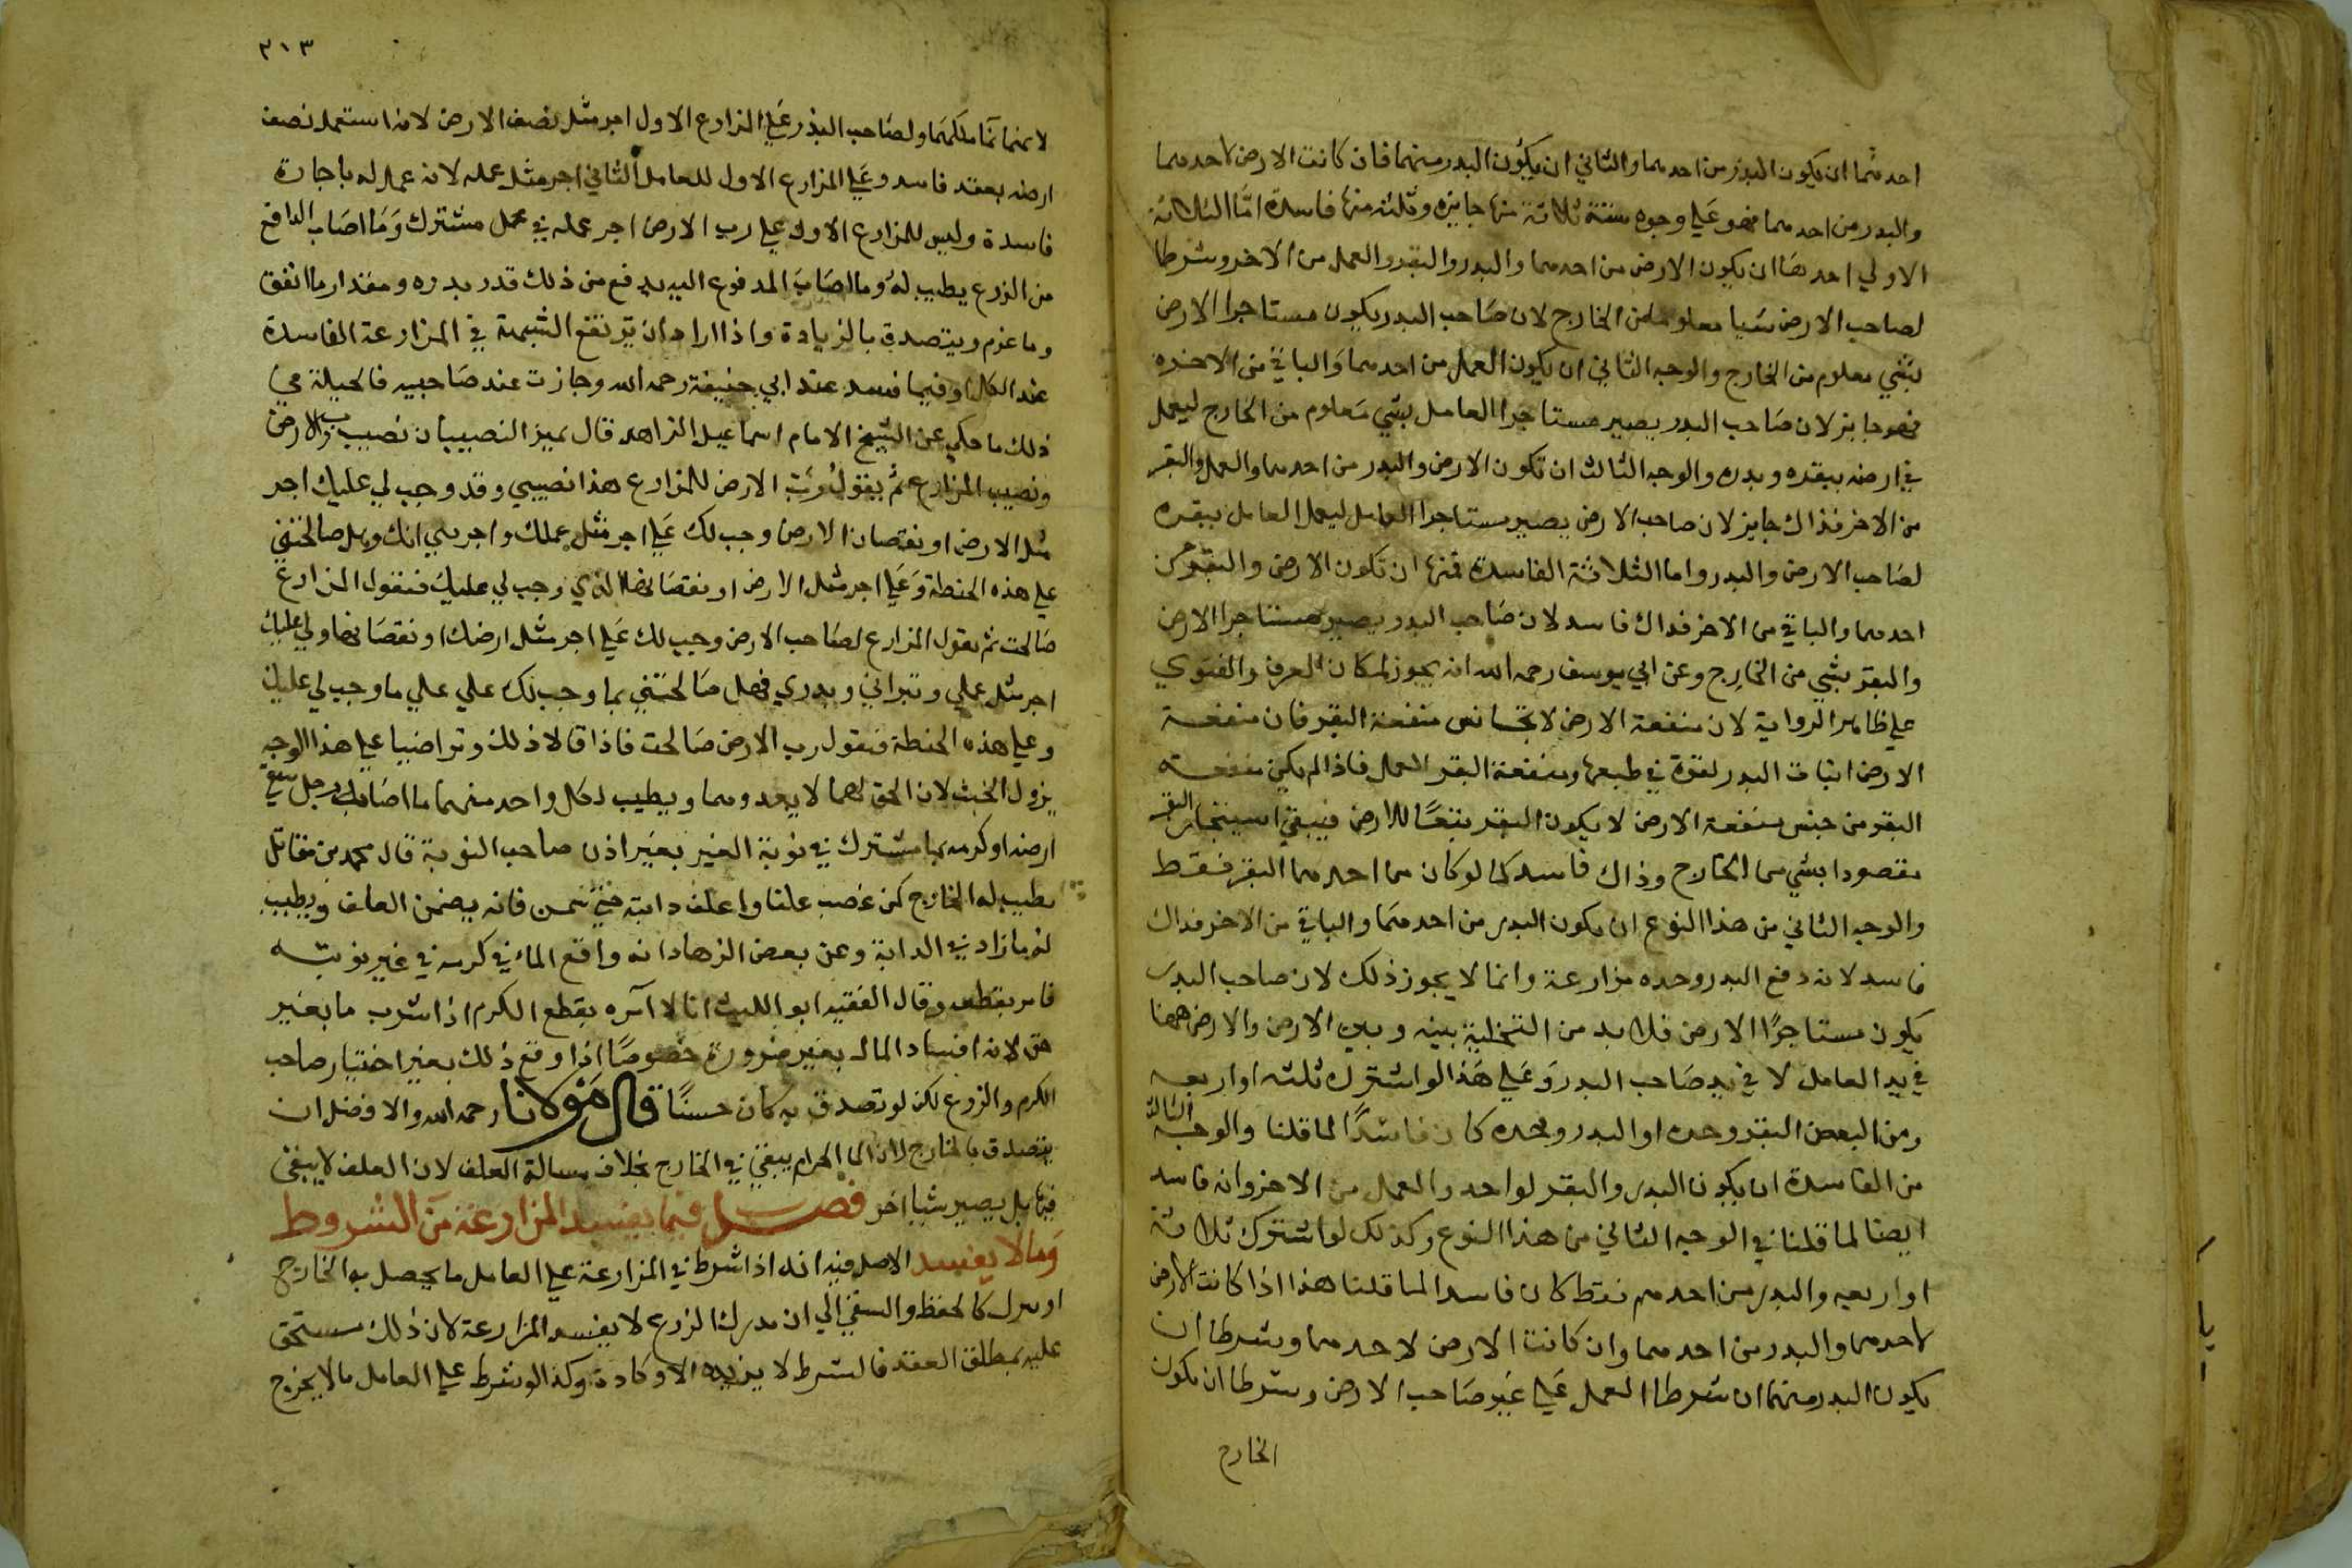 احدهما ان يكون البذر من احدهما والثاني ان يكون البدر منهما فان كانت الارض لاحدهما
والبدر من احدهما فهو على وجوه ستة ثلاثة منها جايزه وثلثه منها فاسدة اما الثلاثة
الاولي احدها ان يكون الارض من احدهما والبدر والبقر والعمل من الاخر وشرطا
لصاحب الارض شيا معلوما من الخارج لان صاحب البدر يكون مستاجرا الارض
بشي معلوم من الخارج والوجه الثاني ان يكون العمل من احدهما والباقي من الاخر
فهو جايز لان صاحب البدر يصير مستاجرا العامل بشي معلوم من الخارج ليعمل
في ارضه ببقره وبدره والوجه الثالث ان تكون الارض والبدر من احدهما والعمل والبقر
من الاخر فذاك جايز لان صاحب الارض يصير مستاجرا العامل ليعمل العامل ببقره
لصاحب الارض والبدر واما الثلاثة الفاسدة فمنها ان تكون الارض والبقر من
احدهما والباقي من الاخر فداك فاسد لان صاحب البدر يصير مستاجرا الارض
والبقر بشي من الخارج وعن ابي يوسف رحمه الله انه يجوز لمكان العرف والفتوي
علي ظاهر الرواية لان منفعة الارض لا تجانس منفعة البقر فان منفعة
الارض انبات البدر لقوة في طبعها ومنفعة البقر العمل فاذا لم يكن منفعته
البقر من جنس منفعة الارض لا يكون البقر تبعا للارض فيبقي استيجار البقر
مقصودا بشي من الخارج وذاك فاسد كما لو كان من احدهما البقر فقط
والوجه الثاني من هذا النوع ان يكون البدر من احدهما والباقي من الاخر فداك
فاسد لانه دفع البدر وحده مزارعة وانما لا يجوز ذلك لان صاحب البدر
يكون مستاجرا الارض فلا بد من التخلية بينه وبين الارض والارض ههنا
في يد العامل لا في يد صاحب البدر وعلي هذا لو اشترك ثلثه او اربعه
ومن البعض البقر وحده او البدر وحده كان فاسدا لما قلنا والوجه الثالث
من الفاسدة ان يكون البدر والبقر لواحد والعمل من الاخر وانه فاسد
ايضا لما قلنا في الوجه الثاني من هذا النوع وكذلك لو اشترك ثلاثة
او اربعه والبدر من احدهم فقط كان فاسدا لما قلنا هذا اذا كانت الارض
لاحدهما والبدر من احدهما وان كانت الارض لاحدهما وشرطا ان
يكون البدر منهما ان شرطا العمل علي غير صاحب الارض وشرطا ان يكون
الخارج
٣١٣
لانهما نما ملكهما ولصاحب البذر علي المزارع الاول اجر مثل نصف الارض لانه استعمل نصف
ارضه بعقد فاسد وعلي المزارع الاول للعامل الثاني اجر مثل عمله لانه عمل له باجارة
فاسدة وليس للمزارع الاول علي رب الارض اجر عمله في عمل مشترك وما اصاب الدافع
من الزرع يطيب له وما اصاب المدفوع اليه يدفع من ذلك قدر بدره ومقدار ما انفق
وما غرم ويتصدق بالزيادة واذا اراد ان ترتفع الشبهة في المزارعة الفاسدة
عند الكل او فيما فسد عند ابي حنيفة رحمه الله وجازت عند صاحبيه فالحيلة في
ذلك ما حكي عن الشيخ الامام اسماعيل الزاهد قال يميز النصيبان نصيب رب الارض
ونصيب المزارع ثم يقول رب الارض للمزارع هذا نصيبي وقد وجب لي عليك اجر
مثل الارض او نقصان الارض وجب لك علي اجر مثل عملك وهل صالحتني
علي هذه الحنطة وعلي اجر مثل الارض او نقصانها الذي وجب لي عليك فيقول المزارع
صالحت ثم يقول المزارع لصاحب الارض وجب لك علي اجر مثل ارضك او نقصانها ولي عليك
اجر مثل عملي وبدري فهل صالحتني بما وجب لك علي علي ما وجب لي عليك
وعلي هذه الحنطة فيقول رب الارض صالحت فاذا قالا ذلك وتراضيا علي هذا الوجه
يزول الخبث لان الحق لهما لا يعدوهما ويطيب لكل واحد منهما ما اصابه رجل سقي
ارضه او كرمه بما مشترك في نوبة الغير بغير اذن صاحب النوبة قال محمد بن مقاتل
يطيب له الخارج كمن غصب علفا واعلف دابته حتي سمن فانه يضمن العلف ويطيب
له ما زاد في الدابة وعن بعض الزهاد انه وقع الماء في كرمه في غير نوبته
فامر بقطعه وقال الفقيه ابو الليث انا لا آمره بقطع الكرم اذا شرب ما بغير
حق لانه افساد المال بغير ضرورة خصوصا اذا وقع ذلك بغير اختيار صاحب
الكرم والزرع لكن لو تصدق به كان حسنا قال مولانا رحمه الله والافضل ان
يتصدق بالخارج لان الما الحرام يبقي في الخارج بخلاف مسالة العلف لان العلف لا يبقي
فيها بل يصير شيا اخر فصل فيما يفسد المزارعة من الشروط
وما لا يفسد الاصل فيه انه اذا شرط في المزارعة علي العامل ما يحصل به الخارج
كالحفظ والسقي الي ان يدرك الزرع لا يفسد المزارعة لان ذلك مستحق
عليه بمطلق العقد فالشرط لا يزيده الا وكادة وكذا لو شرط علي العامل ما لا يخرج